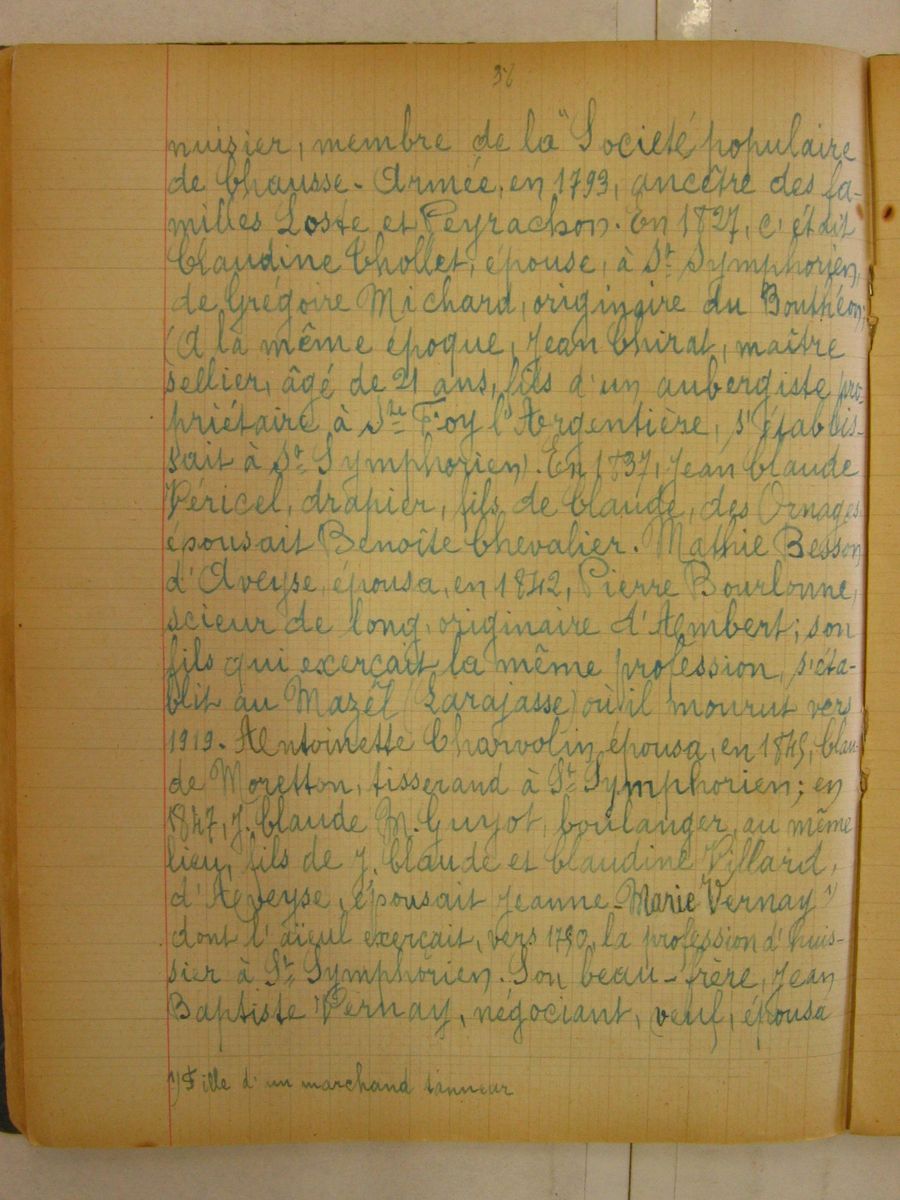 38
nuisier, membre de la "Societé populaire
de Chausse-Armée, en 1793, ancêtre des fa-
milles Loste et Peyrachon. En 1827, c'était
Claudine Chollet, épouse, à St Symphorien,
de Grégoire Michard, originaire du Bouthéon;
(A la même époque, Jean Chirat, maître
sellier, âgé de 21 ans, fils d'un aubergiste pro-
priétaire à Ste Foy l'Argentière, s'établis-
sait à St Symphorien). En 1837, Jean Claude
Véricel, drapier, fils de Claude, des Ornages
épousait Benoîte Chevalier. Mathie Besson
d'Aveyse, épousa, en 1842, Pierre Bourlonne,
scieur de long, originaire d'Ambert; son
fils qui exerçait la même profession, s'éta-
blit au Mazel (Larajasse) où il mourut vers
1919. Antoinette Charvolin épousa, en 1845, Clau-
de Moretton, tisserand à St Symphorien; en
1847, J. Claude M. Guyot, boulanger, au même
lieu, fils de J. Claude et Claudine Villard,
d'Aveyse, épousait Jeanne-Marie Vernay 1)
dont l'aïeul exerçait, vers 1790, la profession d'huis-
sier à St Symphorien. Son beau-frère, Jean
Baptiste Vernay, négociant, veuf, épousa
1) Fille d'un marchand tanneur